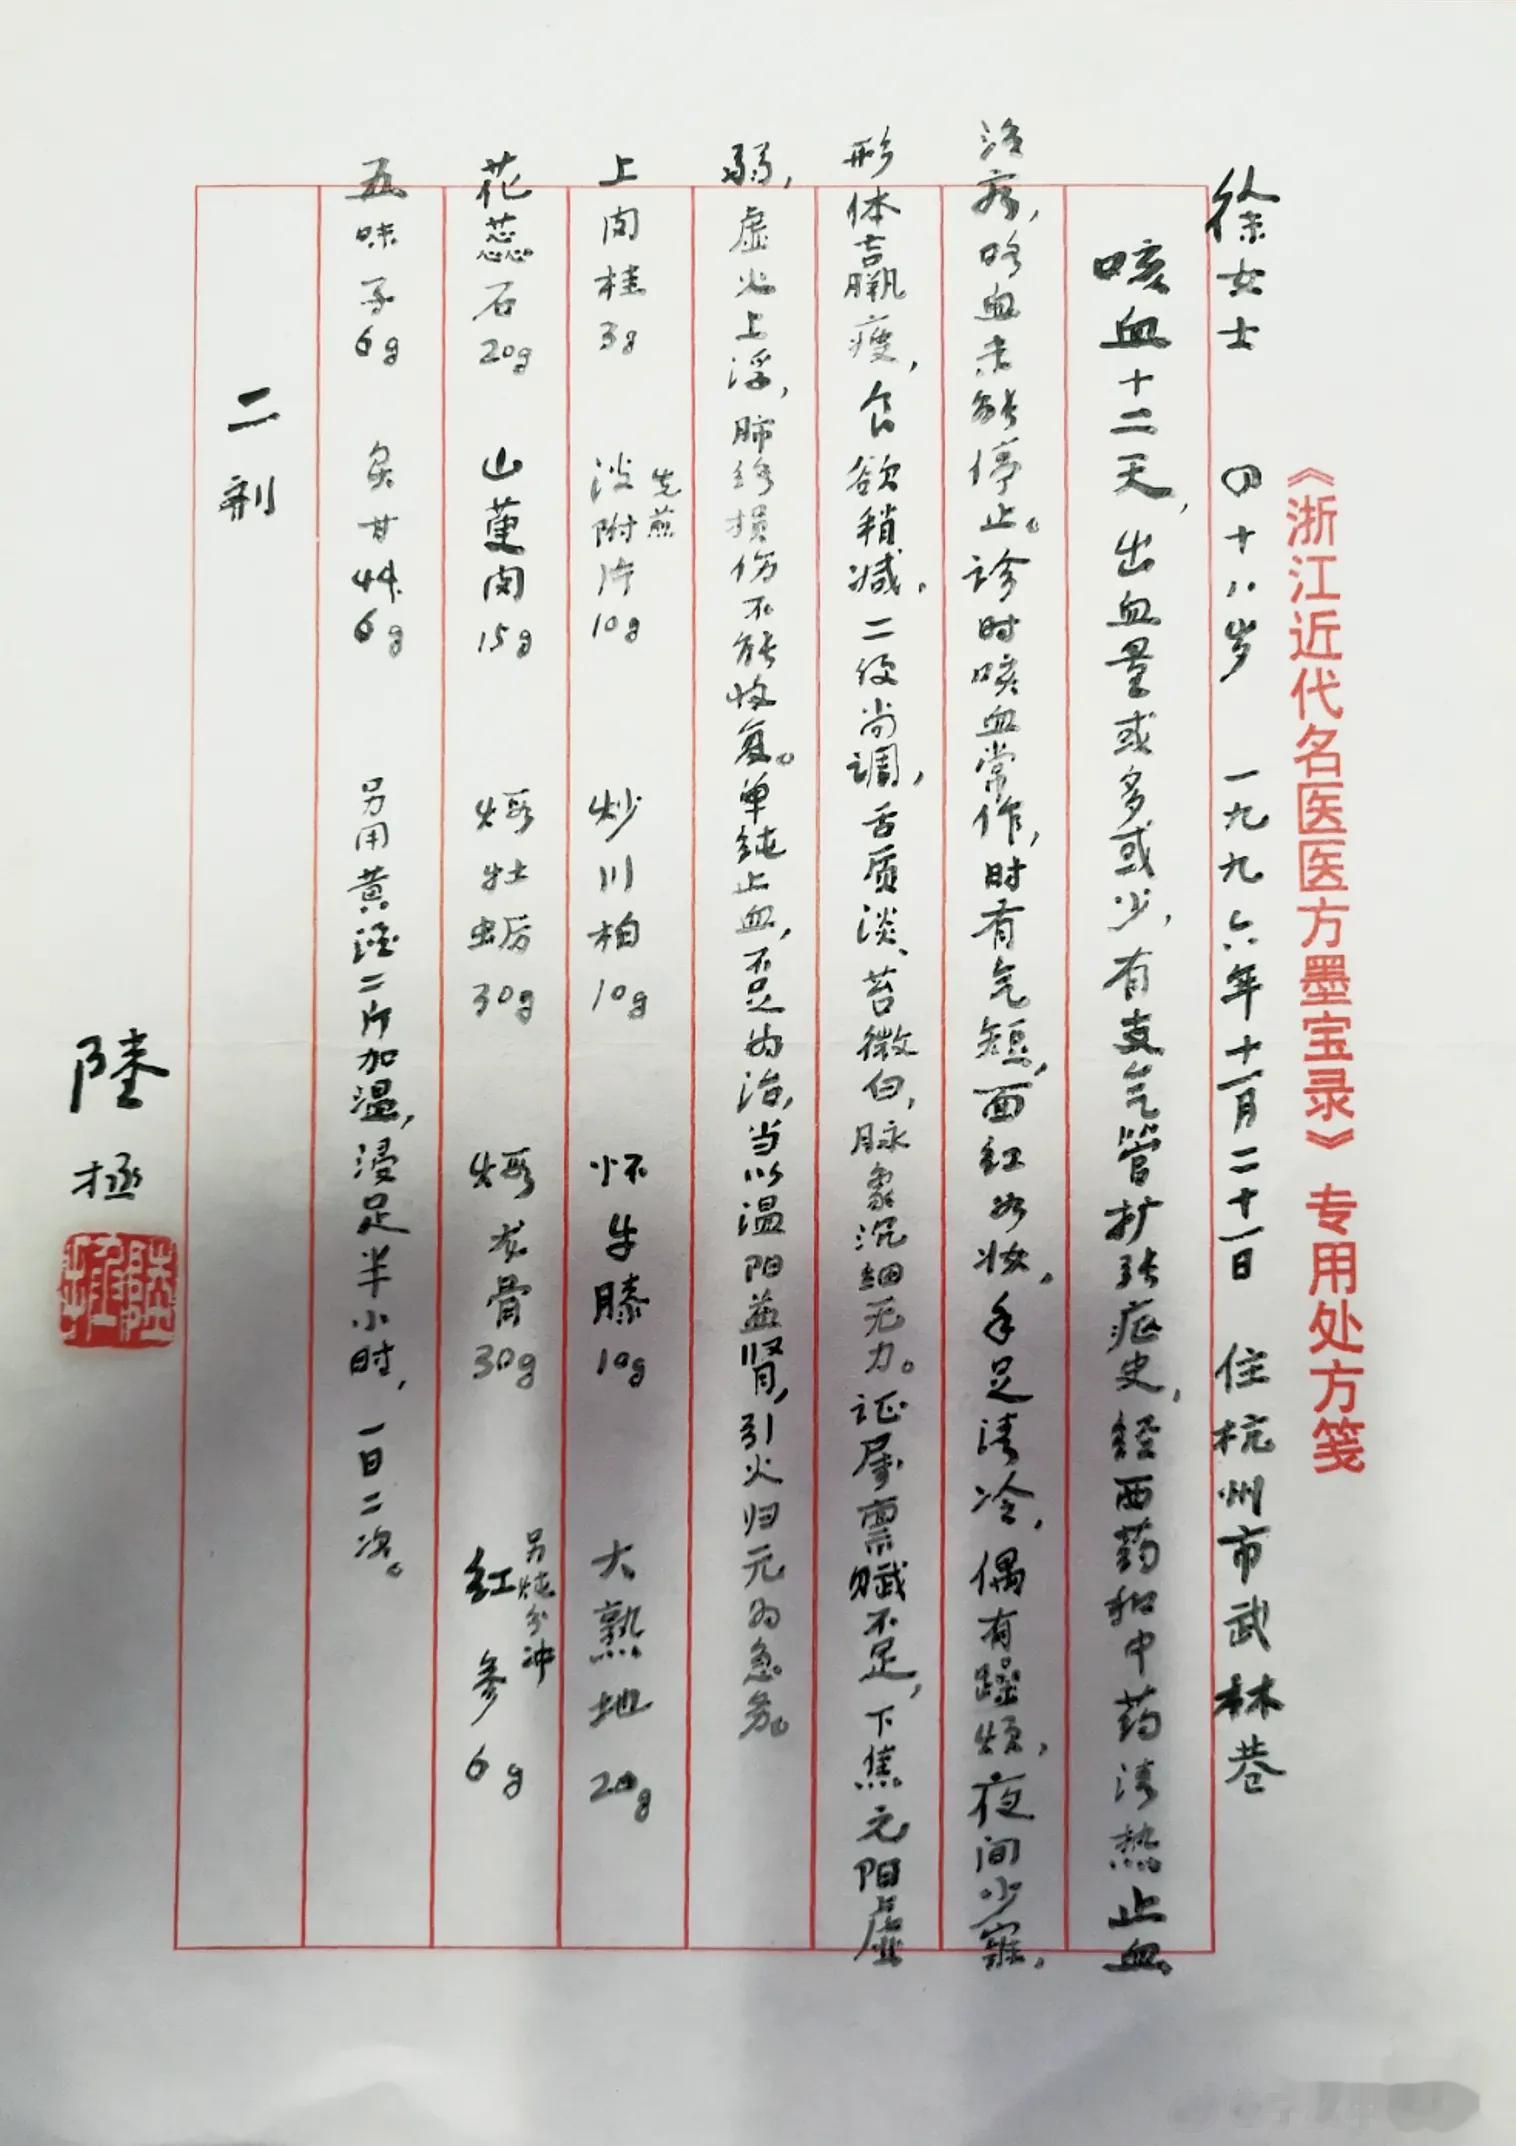 《浙江近代名医医方墨宝录》专用处方笺
徐女士 四十八岁 一九九六年十一月二十一日 住杭州市武林巷
咳血十二天，出血量或多或少，有支气管扩张症史，经西药和中药清热止血
治疗，咯血未能停止。诊时咳血常作，时有气短，面红如妆，手足清冷，偶有躁烦，夜间少寐，
形体羸瘦，食欲稍减，二便尚调，舌质淡、苔微白，脉象沉细无力。证属禀赋不足，下焦元阳虚
弱，虚火上浮，肺络损伤不能收复。单纯止血，不足为治，当以温阳益肾，引火归元为急务。
上肉桂3g 淡附片10g 先煎 炒川柏10g 怀牛膝10g 大熟地20g
花蕊石20g 山萸肉15g 煅牡蛎30g 煅龙骨30g 红参6g 另炖分冲
五味子6g 炙甘草6g 另用黄酒二斤加温，浸足半小时，一日二次。
二剂
陸拯
陸拯